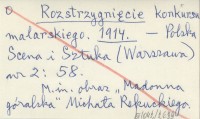 Rozstrzygnięcie konkursu
malarskiego. 1914. — Polska
Scena i Sztuka (Warszawa)
nr 2: 58.
M. in. obraz „Madonna
góralska" Michała Rekuckiego.